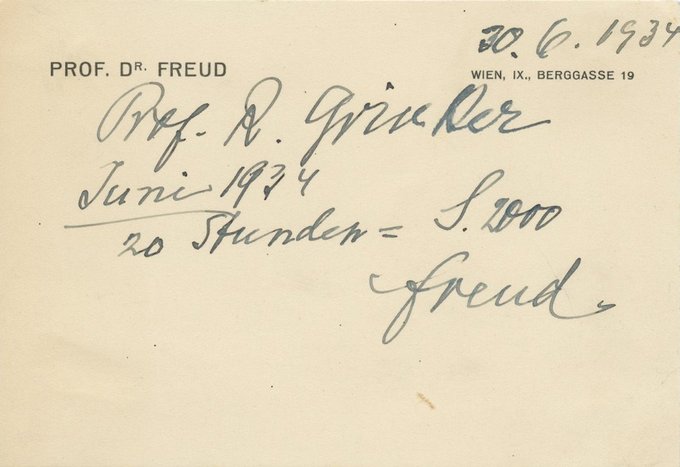 30. 6. 1934
PROF. DR. FREUD
WIEN, IX., BERGGASSE 19
Prof. R. Grinker
Juni 1934
20 Stunden = S. 2000
Freud